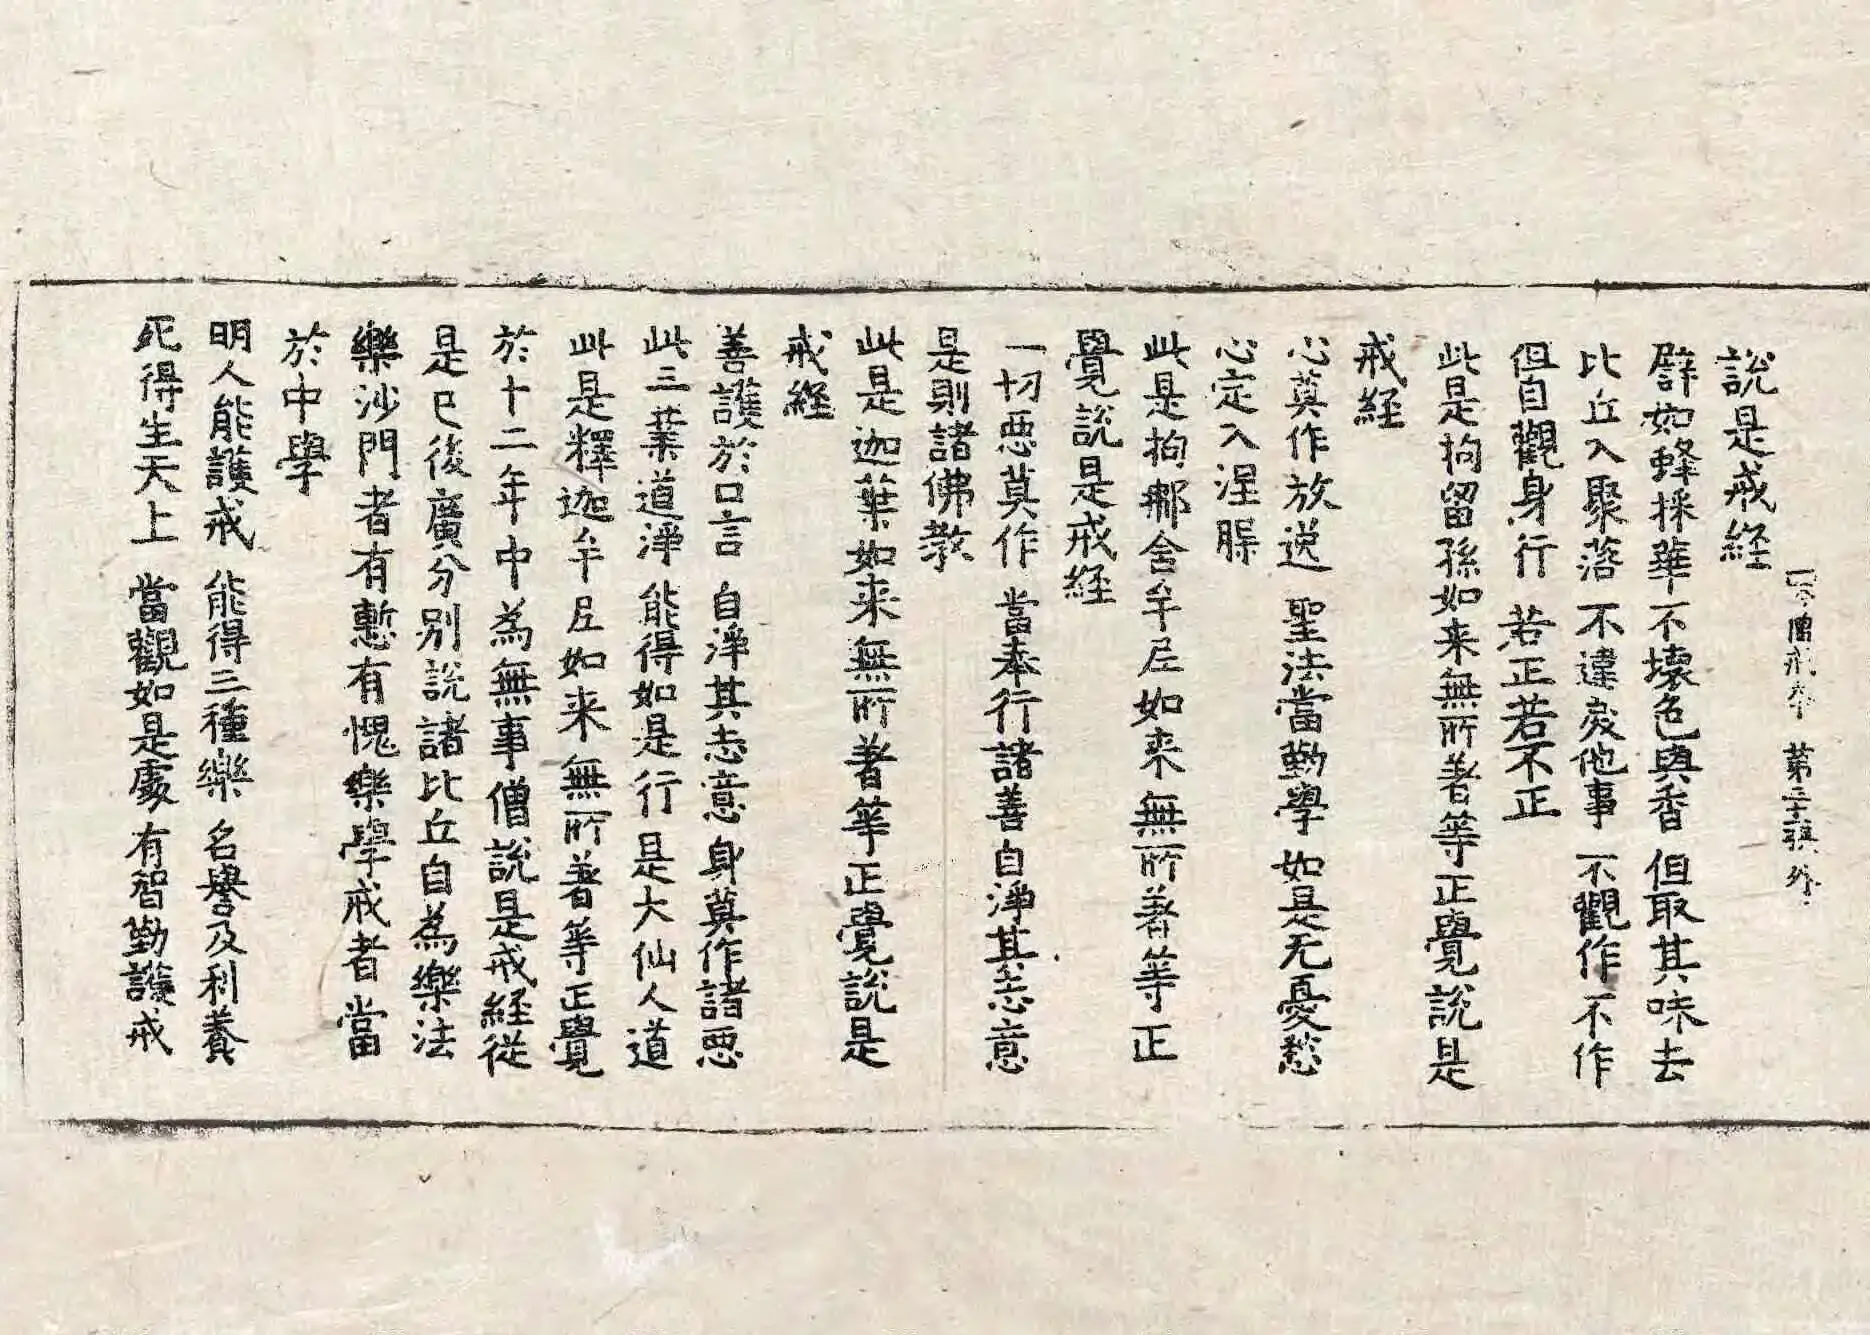 四分僧戒本 第二十張 外
說是戒経
譬如蜂採華不壞色與香 但取其味去
比丘入聚落 不違戾他事 不觀作不作
但自觀身行 若正若不正
此是拘留孫如来無所著等正覺說是
戒経
心莫作放逸 聖法當勤學 如是无憂愁
心定入涅槃
此是拘那舍牟尼如来無所著等正
覺說是戒経
一切惡莫作 當奉行諸善 自淨其志意
是則諸佛教
此是迦葉如来無所著等正覺說是
戒経
善護於口言 自淨其志意 身莫作諸惡
此三業道淨 能得如是行 是大仙人道
此是釋迦牟尼如来無所著等正覺
於十二年中為無事僧說是戒経從
是已後廣分別說諸比丘自為樂法
樂沙門者有慙有愧樂學戒者當
於中學
明人能護戒 能得三種樂 名譽及利養
死得生天上 當觀如是處 有智勤護戒